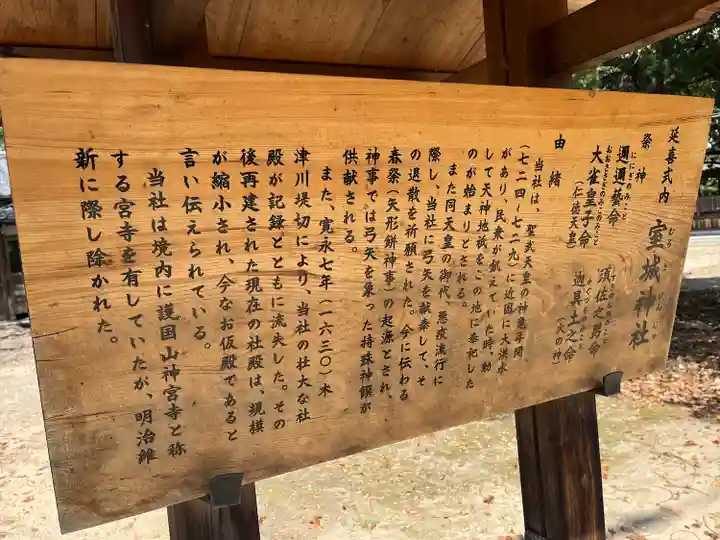 延喜式内 室城神社
むろきじんじゃ
祭神
ににぎのみこと
邇邇藝命
須佐之男命
おおささぎのみこのみこと
大雀皇子命
(仁徳天皇)
迦具土之命
(火の神)
由緒
当社は、聖武天皇の神亀年間
(七二四-七二九)に近国に大洪水
があり、民衆が飢えていた時、勅
して天神地祇をこの地に奉祀した
のが始まりとされる。
また同天皇の御代、悪疫流行に
際し、当社に弓矢を献奉して、そ
の退散を祈願された。今に伝わる
春祭(矢形餅神事)の起源とされ、
神事では弓矢を象った特殊神饌が
供献される。
また、寛永七年(一六三〇)木
津川堤切により、当社の壮大な社
殿が記録とともに流失した。その
後再建された現在の社殿は、規模
が縮小され、今なお仮殿であると
言い伝えられている。
当社は境内に護国山神宮寺と称
する宮寺を有していたが、明治維
新に際し除かれた。